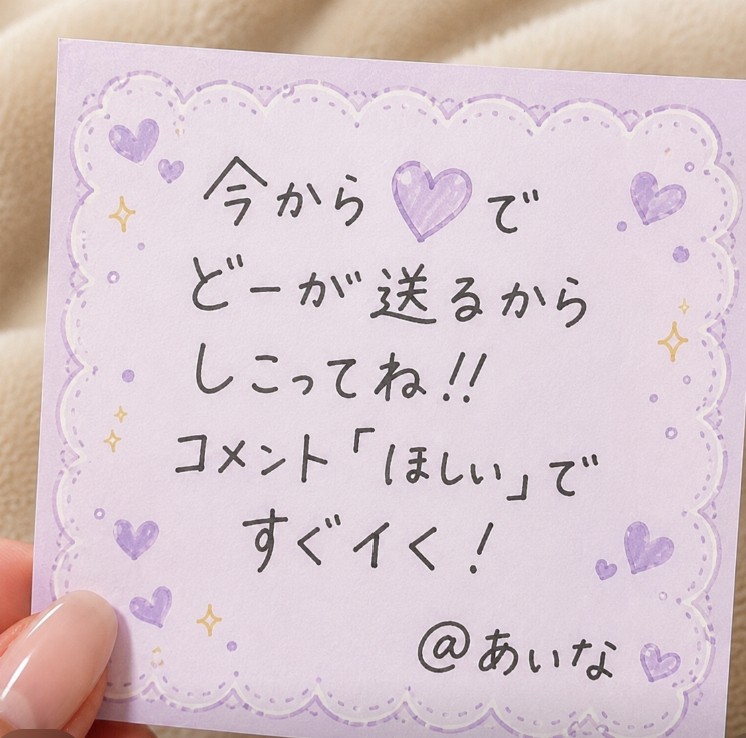 今から💜で
どーが送るから
しこってね!!
コメント「ほしい」で
すぐイく!
@あいな